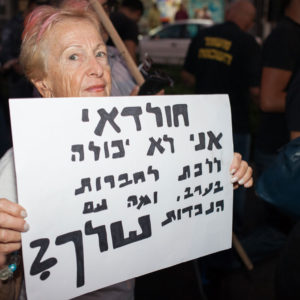 חולדאי
אני לא יכולה
ללכת לחברות
בערב, ומה עם
הנכדות שלך?